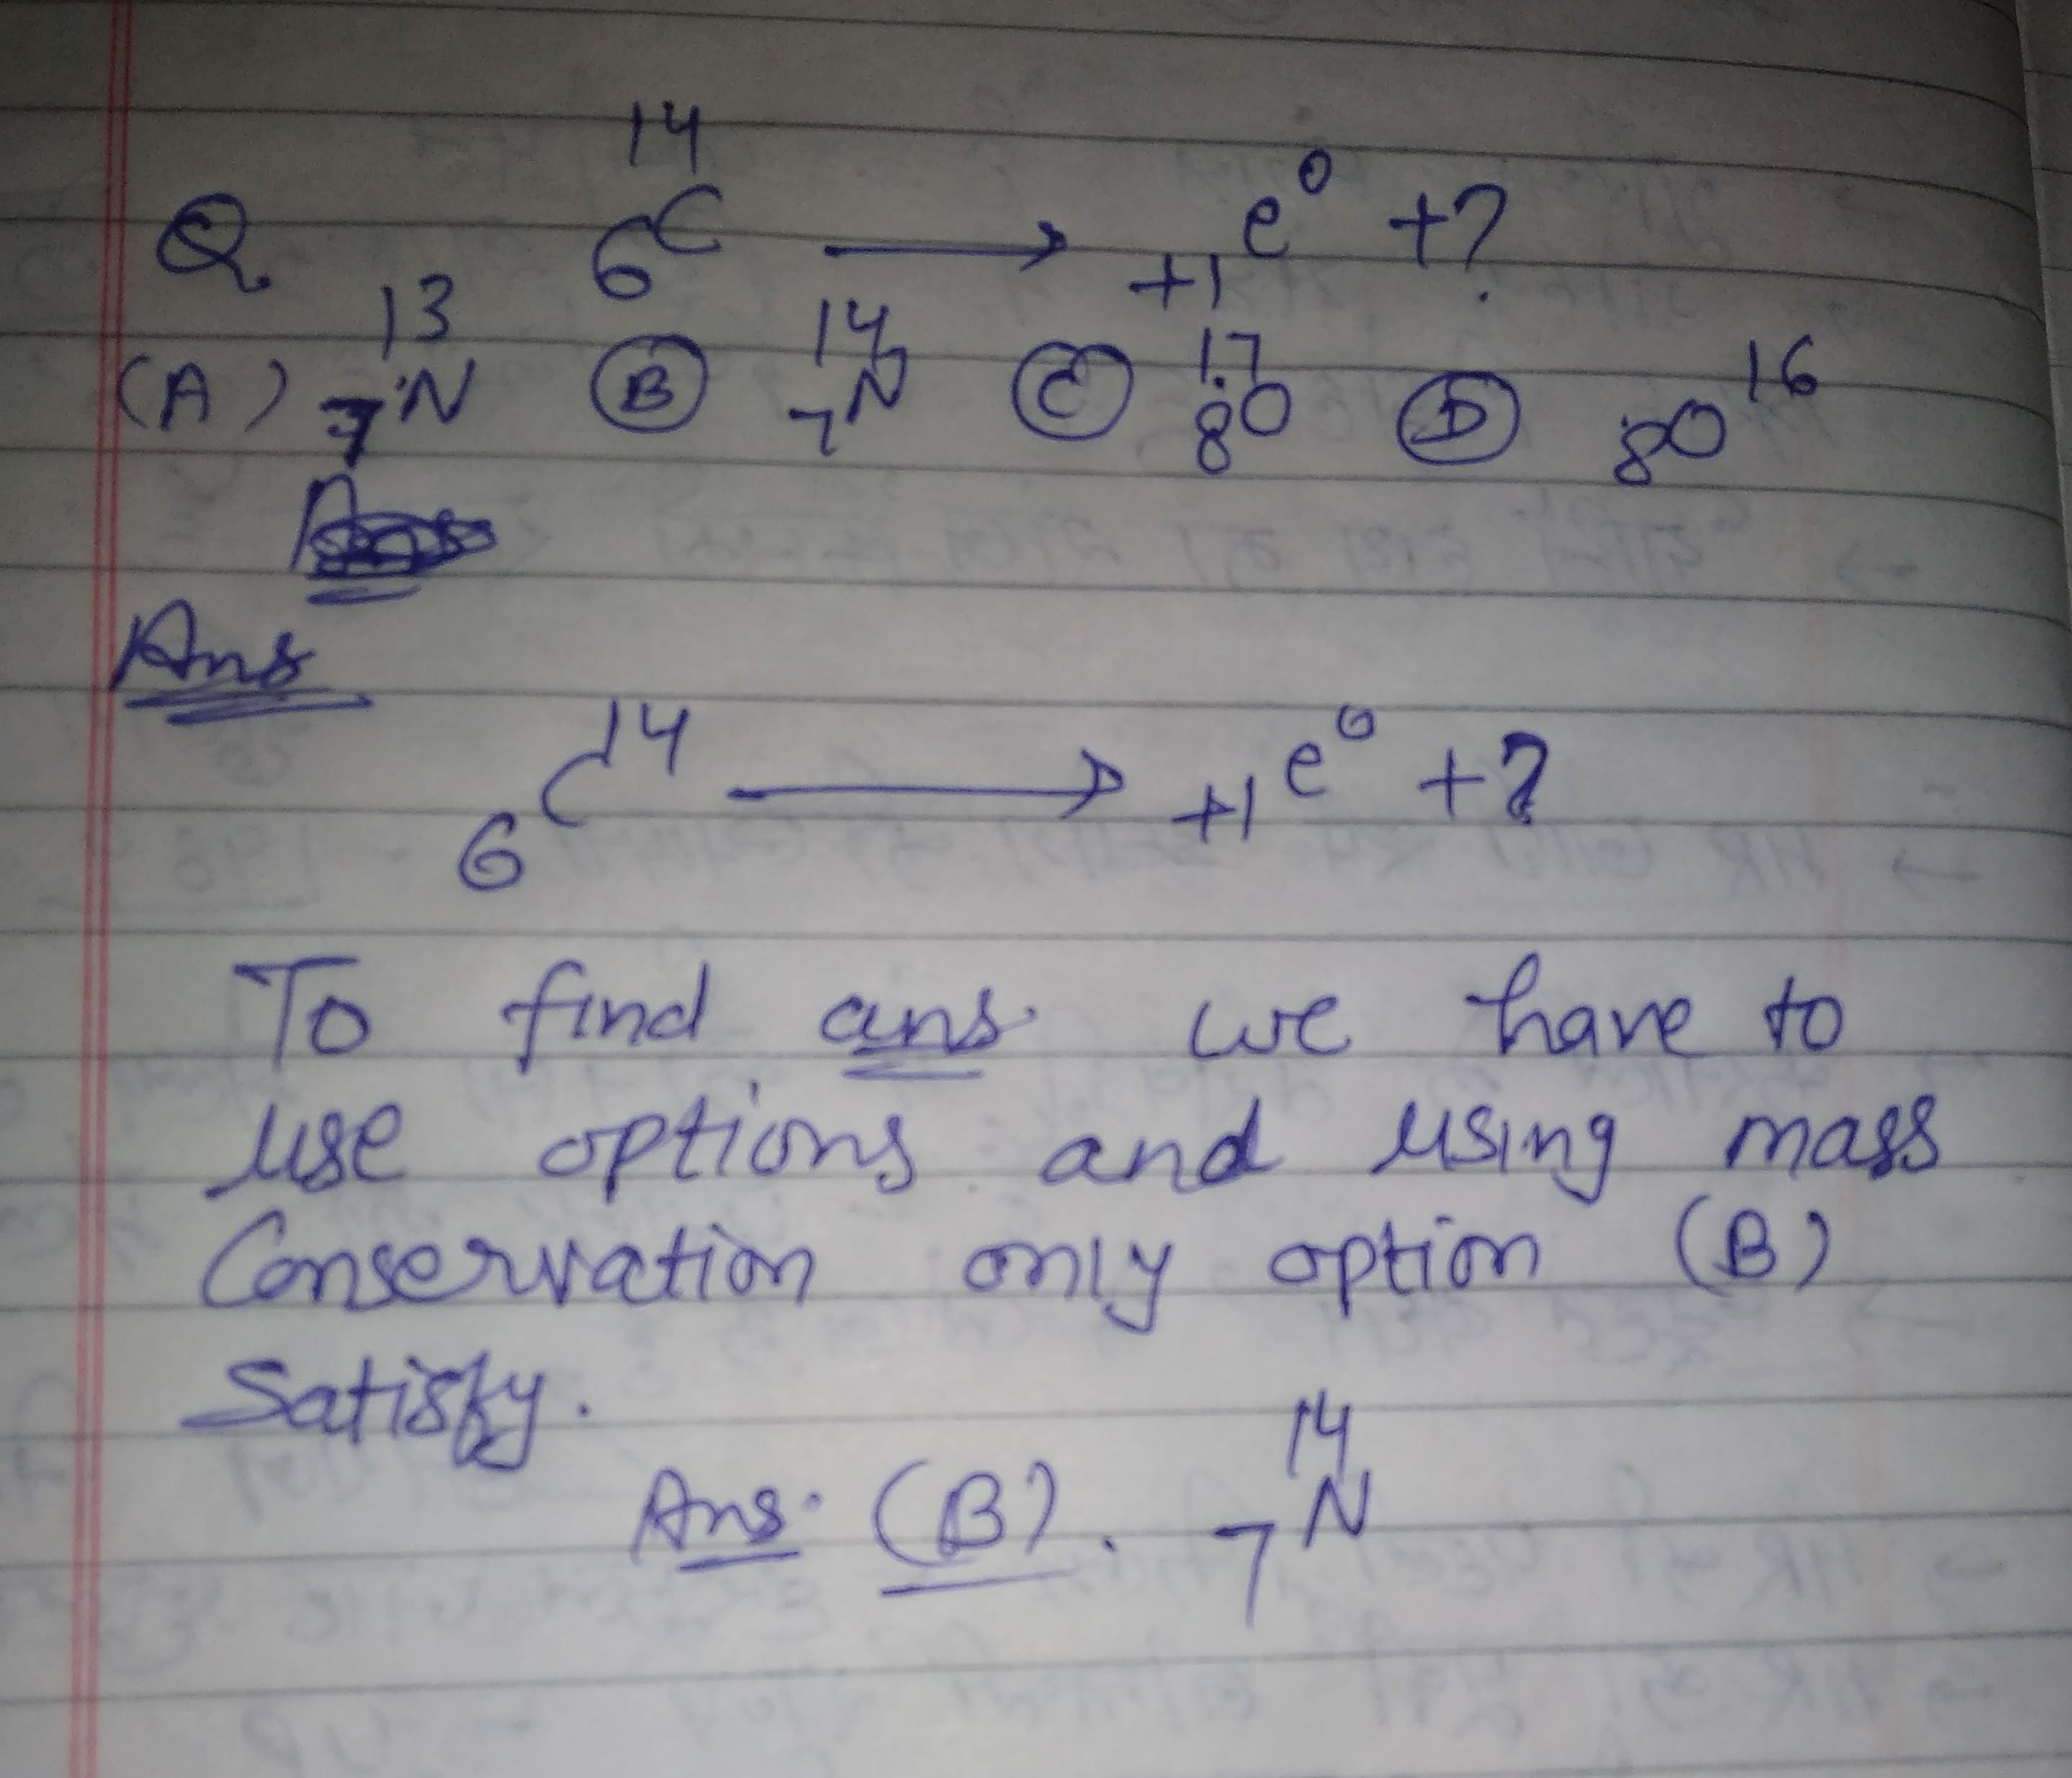 Q. ₆C¹⁴ → ₊₁e⁰ + ?
(A) ₇N¹³ (B) ₇N¹⁴ (C) ₈O¹⁷ (D) ₈O¹⁶
Ans
₆C¹⁴ → ₊₁e⁰ + ?
To find ans. we have to
use options and using mass
Conservation only option (B)
Satisfy.
Ans. (B). ₇N¹⁴